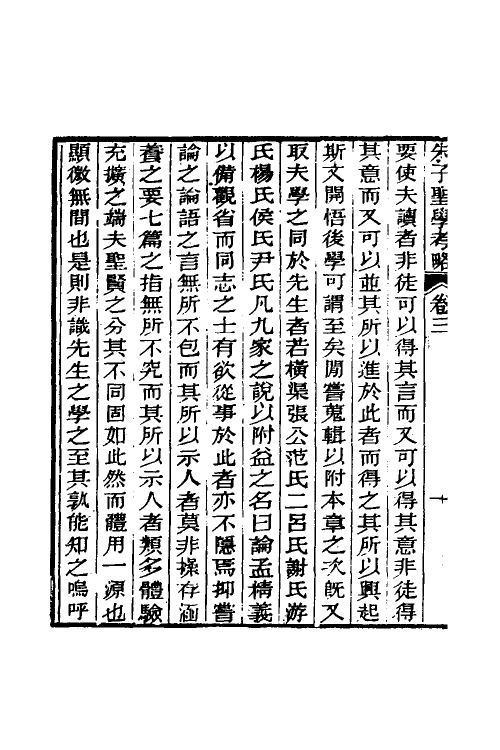 朱子聖學考略 卷三 十
要使夫讀者非徒可以得其言而又可以得其意非徒得
其意而又可以並其所以進於此者而得之其所以興起
斯文開悟後學可謂至矣閒嘗蒐輯以附本章之次旣又
取夫學之同於先生者若橫渠張公范氏二呂氏謝氏游
氏楊氏侯氏尹氏凡九家之說以附益之名曰論孟精義
以備觀省而同志之士有欲從事於此者亦不隱焉抑嘗
論之論語之言無所不包而其所以示人者莫非操存涵
養之要七篇之指無所不究而其所以示人者類多體驗
充擴之端夫聖賢之分其不同固如此然而體用一源也
顯微無間也是則非識先生之學之至其孰能知之嗚呼